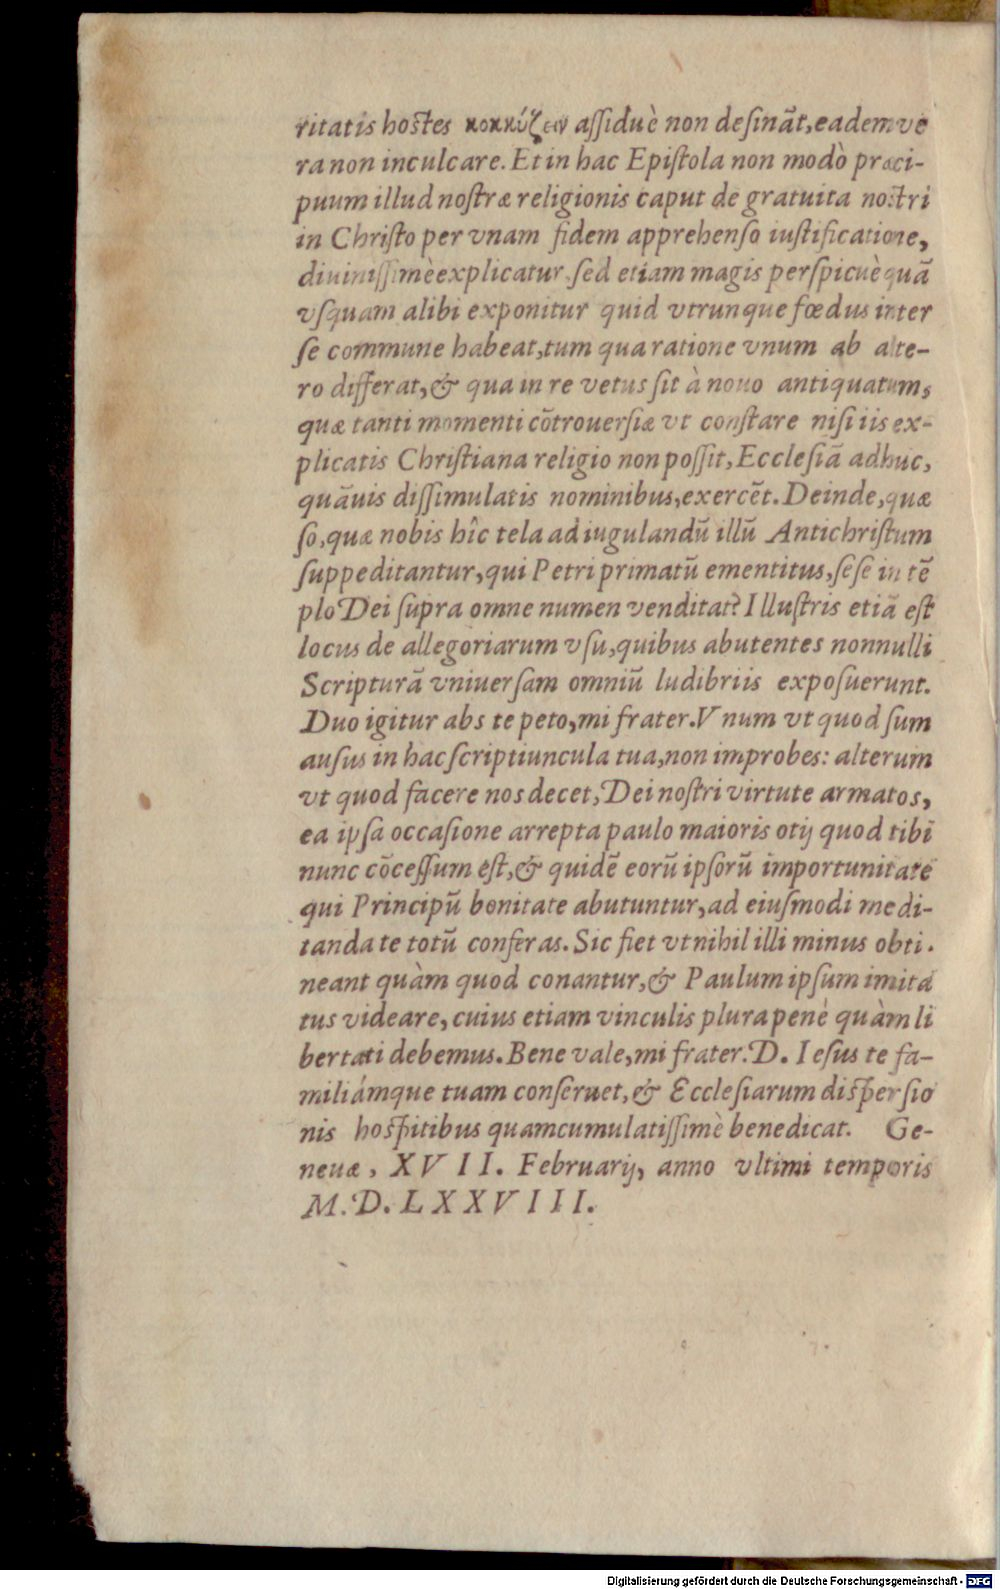 ritatis hostes κοκκύζειν aſſiduè non deſinãt, eadem ve
ra non inculcare. Et in hac Epiſtola non modò præci-
puum illud noſtræ religionis caput de gratuita noſtri
in Chriſto per vnam fidem apprehenſo iuſtificatione,
diuiniſſimè explicatur, ſed etiam magis perſpicuè quã
vſquam alibi exponitur quid vtrunque fœdus inter
ſe commune habeat, tum qua ratione vnum ab alte-
ro differat, & qua in re vetus ſit à nouo antiquatum,
quæ tanti momenti cõtrouerſiæ vt conſtare niſi iis ex-
plicatis Chriſtiana religio non poſſit, Eccleſiã adhuc,
quãuis diſſimulatis nominibus, exercẽt. Deinde, quæ
ſo, quæ nobis hîc tela ad iugulandũ illũ Antichriſtum
ſuppeditantur, qui Petri primatũ ementitus, ſeſe in tẽ
plo Dei ſupra omne numen venditat? Illuſtris etiã eſt
locus de allegoriarum vſu, quibus abutentes nonnulli
Scripturã vniuerſam omniũ ludibriis expoſuerunt.
Duo igitur abs te peto, mi frater. Vnum vt quod ſum
auſus in hac ſcriptiuncula tua, non improbes: alterum
vt quod facere nos decet, Dei noſtri virtute armatos,
ea ipſa occaſione arrepta paulo maioris otij quod tibi
nunc cõceſſum eſt, & quidẽ eorũ ipſorũ importunitate
qui Principũ bonitate abutuntur, ad eiuſmodi medi-
tanda te totũ conferas. Sic fiet vt nihil illi minus obti-
neant quàm quod conantur, & Paulum ipſum imita
tus videare, cuius etiam vinculis plura penè quàm li
bertati debemus. Bene vale, mi frater. D. Ieſus te fa-
miliámque tuam conſeruet, & Eccleſiarum diſperſio
nis hoſpitibus quamcumulatiſſimè benedicat. Ge-
neuæ, XVII. Februarij, anno vltimi temporis
M. D. LXXVIII.
Digitalisierung gefördert durch die Deutsche Forschungsgemeinschaft - DFG